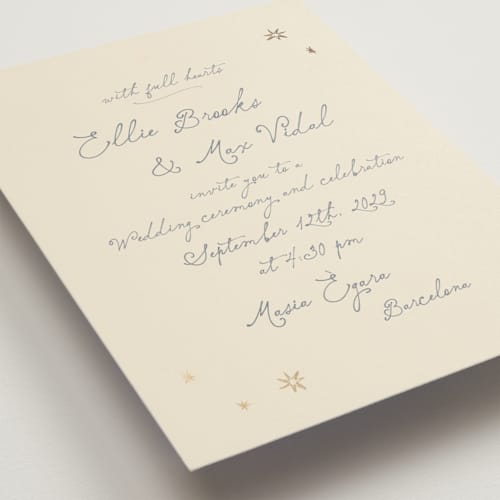 with full hearts
Ellie Brooks
& Max Vidal
invite you to a
Wedding ceremony and celebration
September 12th, 2029
at 4.30 pm
Masia Ègara
Barcelona